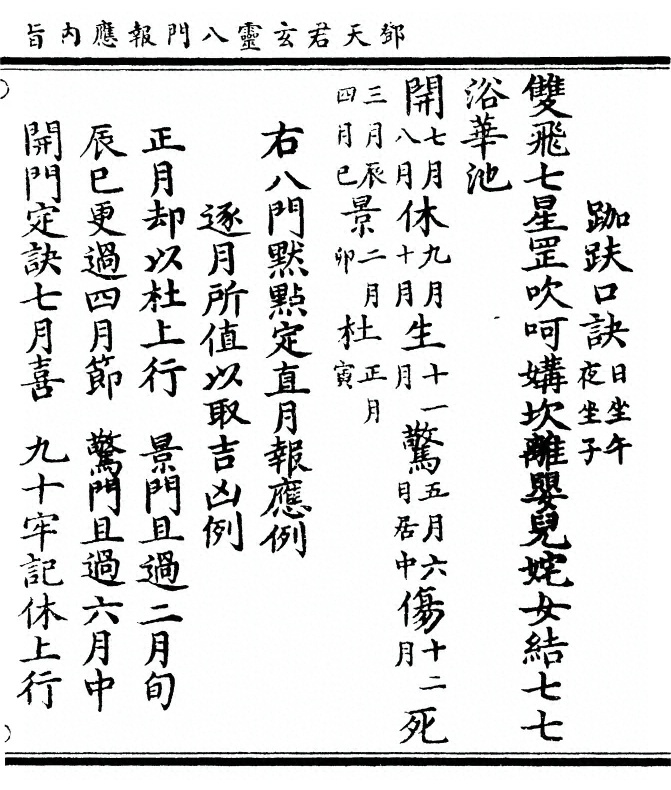 鄧天君玄靈八門報應內旨
跏趺口訣日坐午夜坐子
雙飛七星罡吹呵媾坎離嬰兒姹女結七七
浴華池
開七月八月休九月十月生十一月驚五月六日居中傷十二月死
三月辰四月巳景二月卯杜正月寅
右八門默點定直月報應例
逐月所值以取吉凶例
正月却以杜上行 景門且過二月旬
辰巳更過四月節 驚門且過六月中
開門定訣七月喜 九十牢記休上行